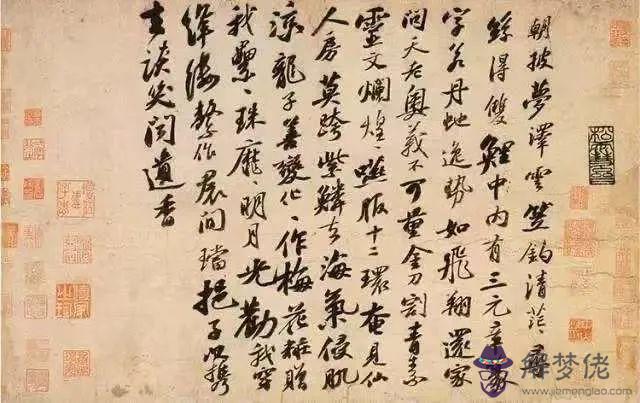 朝披夢澤雲笠釣清茫〻尋
絲得雙鯉中內有三元章篆
字若丹虵逸勢如飛翔還家
問天老奧義不可量金刀割青素
靈文爛煌〻嚥服十二環奄見仙
人房莫跨紫鱗去海氣侵肌
涼龍子善變化〻作梅花粧贈
我纍〻珠靡〻明月光勸我穿
絳縷繫作裙間璫挹子以攜
去談笑聞遺香
解梦佬
www.jiemenglao.com